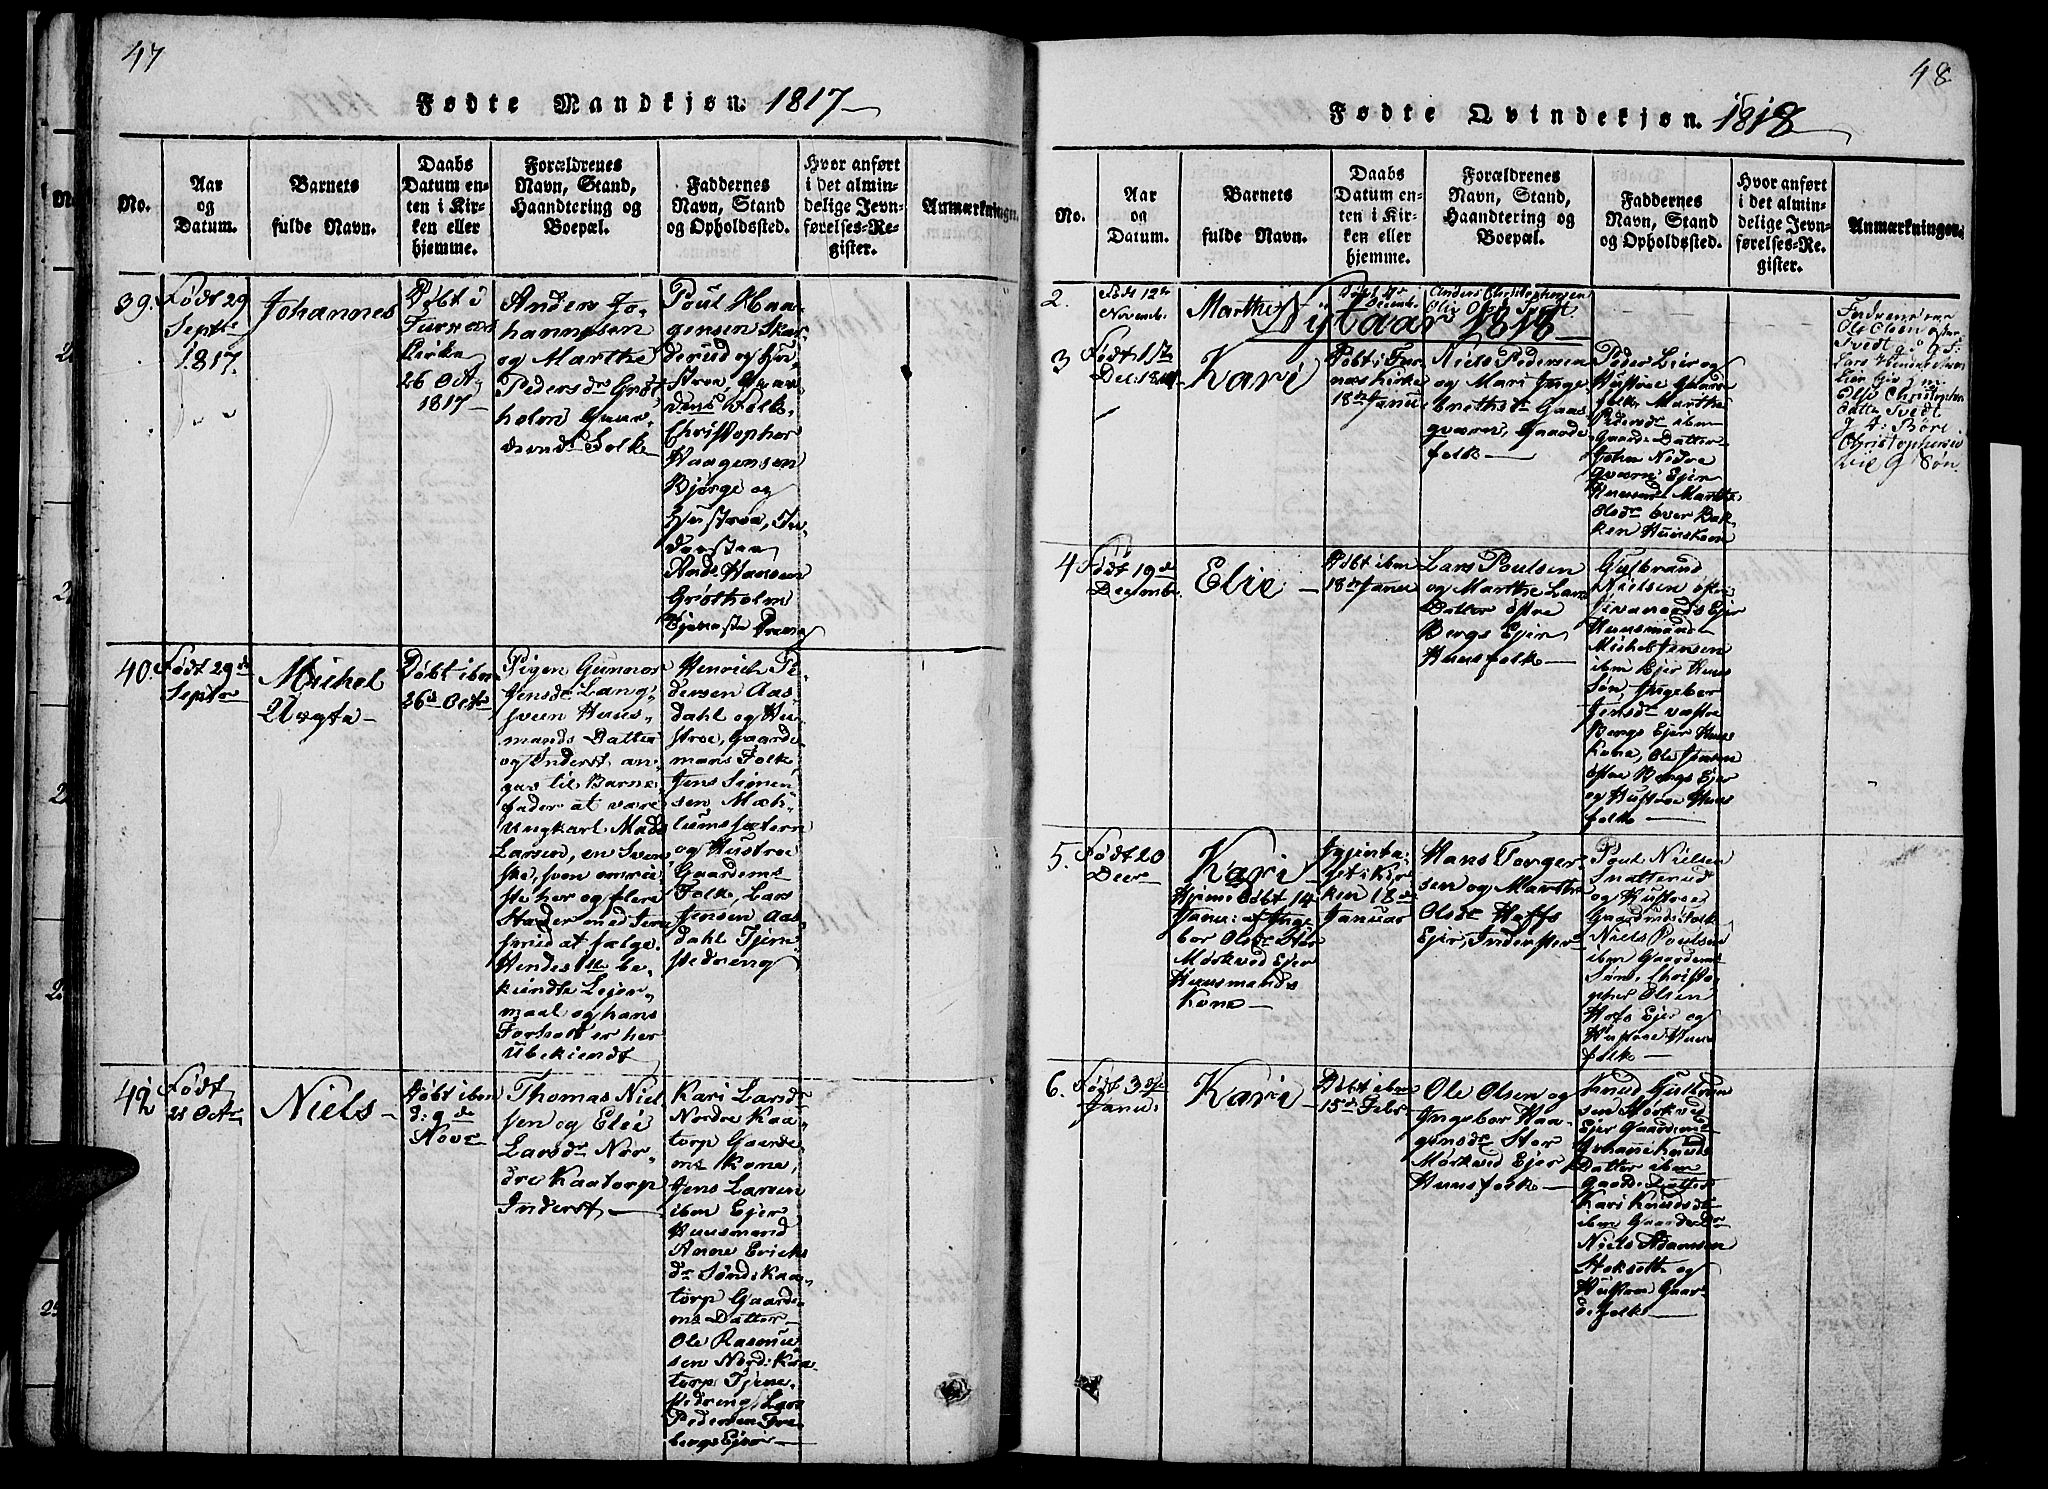 47
Fødte Mandkjøn. 1817
No.
Aar
og
Datum.
Barnets
fulde Navn.
Daabs
Datum en-
ten i Kir-
ken eller
hjemme.
Forældrenes
Navn, Stand,
Haandtering og
Boepæl.
Faddernes
Navn, Stand
og Opholdssted.
Hvor anført
i det almin-
delige Jevn-
førelses-Re-
gister.
Anmærkninge
39.
Født 29
Septbr
1817.
Johannes
Døbt i
Furnæs
Kirke
26 Oct
1817
Anders Jo-
hannesen
og Marthe
Pedersdr Grøt
holm Gaar-
mands Folk
Poul Haa-
gensen Skar
derud og Hu-
stroe, Gaar
dens Folk
Christopher
Haagensen
Bjørge og
Hustroe, In-
dersten
Ande Hansen
Grøtholm
Tjeneste Dreng
40.
Født 29de
Septbr
Michel
Uægta
Døbt ibm
26d Octr
Pigen Gunnor
Jensdr Lang-
sveen Huus-
mands Datter
og Inderst an-
gav til Barne
fader at være
Ungkarl Mads
Larsen, en Sven
ske, som omrei
ste her og flere
Stæder med
smed at fælge.
Hendes 1te be-
kiendte Leier-
maal og hans
Forhold er her
Ubekiendt
Henrich Pe-
dersen Aas
dahl og Hu
stroe, Gaarde
mans Folk
Jens Simen
sen Mæh-
lumssætern
og Hustroe
Gaardems
Folk, Lars
Jensen Aas
dahl Tjene
stedreng
42
Født
21 Octr
Niels
Døbt ibm
d: 9de
Nove
Thomas Niel
sen og Elie
Larsdr Nor-
dre Kaatorp
Inderst
Kari Larsdr
Nordre Kaa-
torp Gaarde
ms Kone,
Jens Larsen
ibm Ejer
Huusmand
Anne Ericks
dr Sønd: Kaa-
torp Gaarde-
ms Datter
Ole Rasmus
sen Nord: Kaa-
torp Tjene-
stedreng, Lars
Pedersen Fre
bergs Ejer
48
Fødte Qvindekjøn. 1818
No.
Aar
og
Datum.
Barnets
fulde Navn.
Daabs
Datum en-
ten i Kir-
ken eller
hjemme.
Forældrenes
Navn, Stand,
Haandtering og
Boepæl.
Faddernes
Navn, Stand
og Opholdssted.
Hvor anført
i det almin-
delige Jevn-
førelses-Re-
gister.
Anmærkninger.
2.
Født 12te
Novemb.
Marthe
Decemb.
Anders Christophersen
Elie Olsdr Tvedt
Nytaar 1818
Fadrene var
Ole Olsen
Tvedt g: F:
Lars Hendricksen
Lier Ejer
Elie Christophers
datter Tvedt
g d: Børe
Christophersen
Lie G Søn
3
Født 17de
Dec: 1817
Kari
Døbt i Fur
næs Kirke
18de Janu
Niels Pedersen
og Mari Inge
brethsdr Gaas
qværn, Gaarde
folk
Peder Lier og
Hustroe Gaarde
folk Marthe
Pedersdr ibm
Gaards Datter
John Nedre
qværn Ejer
Huusm. Marthe
Olsdr Over Bak
ken Huuskone
4
Født 19de
Decembr.
Elie
Døbt ibm
18de Janu
Lars Poulsen
og Marthe Lars
Datter Østre
Bergs Ejer
Huusfolk
Gulbrand
Nielsen
Ejer
Huusmand
Michel Jensen
ibm Ejer Huus
Søn, Ingebor
Jensdr vestre
Bergs Ejer Huus
Kone, Ole Jensen
østre Bergs Ejer
og Hustroe Huus
folk
5.
Født 20
Decr
Kari
Hjemedøbt 14
Janu: af Inge
bor Olsdr Stor
Mørkved Ejer
Huusmands
Kone
Igjenta-
get i Kir
ken 18de
Januar
Hans Torger
sen og Marthe
Olsdr Hoffs
Ejer, Inderster
Poul Nielsen
Snatterud
og Hustroe
Gaardmds Folk
Niels Poulsen
ibm Gaardems
Søn, Christo
pher Olsen
Hofs Ejer og
Hustroe Huus
folk
6.
Født 3die
Janu.
Kari
Døbt ibm
15de Febr
Ole Olsen og
Ingebor Haa-
gensdr Stor
Mørkved Ejer
Huusfolk
Knud Gulbran
sen Mørkved
Ejer Gaardemd
Johanne Knuds
Datter ibm
Gaards Datter
Kari Knudsdr
ibm Gaards Dr
Niels Adamsen
Stoksett og
Hustroe Gaar
de folk